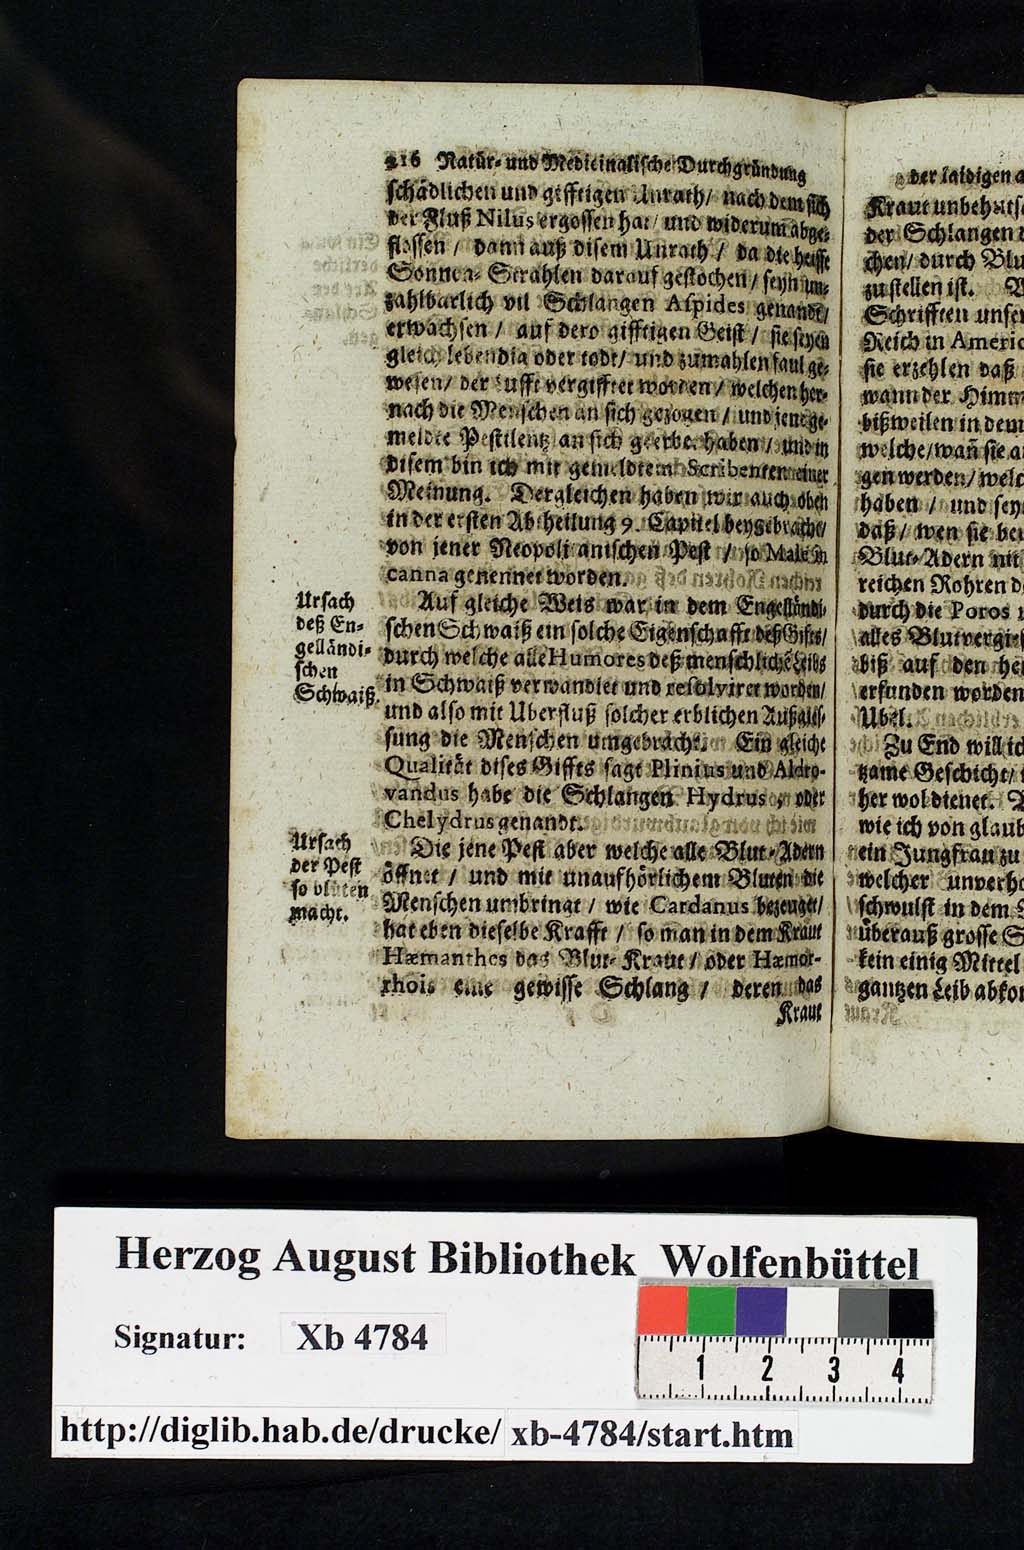 216 Natür- und Medicinalische Durchgründung
schädlichen und gifftigen Unrath/ nach dem sich
der Fluß Nilus ergossen hat/ und widerum abge-
flossen / dann auß disem Unrath / da die heisse
Sonnen-Strahlen darauf gestochen/ seyn un-
zahlbarlich vil Schlangen Aspides genandt/
erwachsen / auf dero gifftigen Geist / sie seyen
gleich lebendig oder todt/ und zumahlen faul ge-
wesen/ der Lufft vergifftet worden/ welchen her-
nach die Menschen an sich gezogen / und jene ge-
meldte Pestilentz an sich geerbet haben / und in
disem bin ich mit gemeldtem Scribenten einer
Meinung. Dergleichen haben wir auch oben
in der ersten Abtheilung 9. Capitel beygebracht/
von jener Neopolitanischen Pest / so Male in
canna genennet worden.
Ursach
deß En-
gelländi-
schen
Schwaiß.
Auf gleiche Weis war in dem Engelländi-
schen Schwaiß ein solche Eigenschafft deß Giffts/
durch welche alle Humores deß menschlichē Leibs
in Schwaiß verwandlet und resolviret worden/
und also mit Uberfluß solcher erblichen Außgies-
sung die Menschen umgebracht. Ein gleiche
Qualität dises Giffts sagt Plinius und Aldro-
vandus habe die Schlangen Hydrus, oder
Chelydrus genandt.
Ursach
der Pest
so bluten
macht.
Die jene Pest aber welche alle Blut-Adern
öffnet / und mit unaufhörlichem Bluten die
Menschen umbringt / wie Cardanus bezeuget/
hat eben dieselbe Krafft / so man in dem Kraut
Hæmanthes das Blut-Kraut / oder Hæmor-
rhois eine gewisse Schlang / deren das
Kraut
der laidigen
Kraut unbehutsa
der Schlangen
chen/ durch Blu
zu stellen ist.
Schrifften unser
Reich in Americ
sie erzehlen daß
wann der Himm
bißweilen in dem
welche/ wañ sie a
gen werden/ welc
haben / und sey
daß / wen sie be
Blut-Adern mit
reichen Rohren d
durch die Poros
alles Blut vergies
biß auf den he
erfunden worden
Ubel.
Zu End will ich
tzame Geschicht/
her wol dienet.
wie ich von glaub
ein Jungfrau zu
welcher unverho
schwulst in dem
überauß grosse S
kein einig Mittel
gantzen Leib abko
Herzog August Bibliothek Wolfenbüttel
Signatur: Xb 4784
1 2 3 4
http://diglib.hab.de/drucke/ xb-4784/start.htm